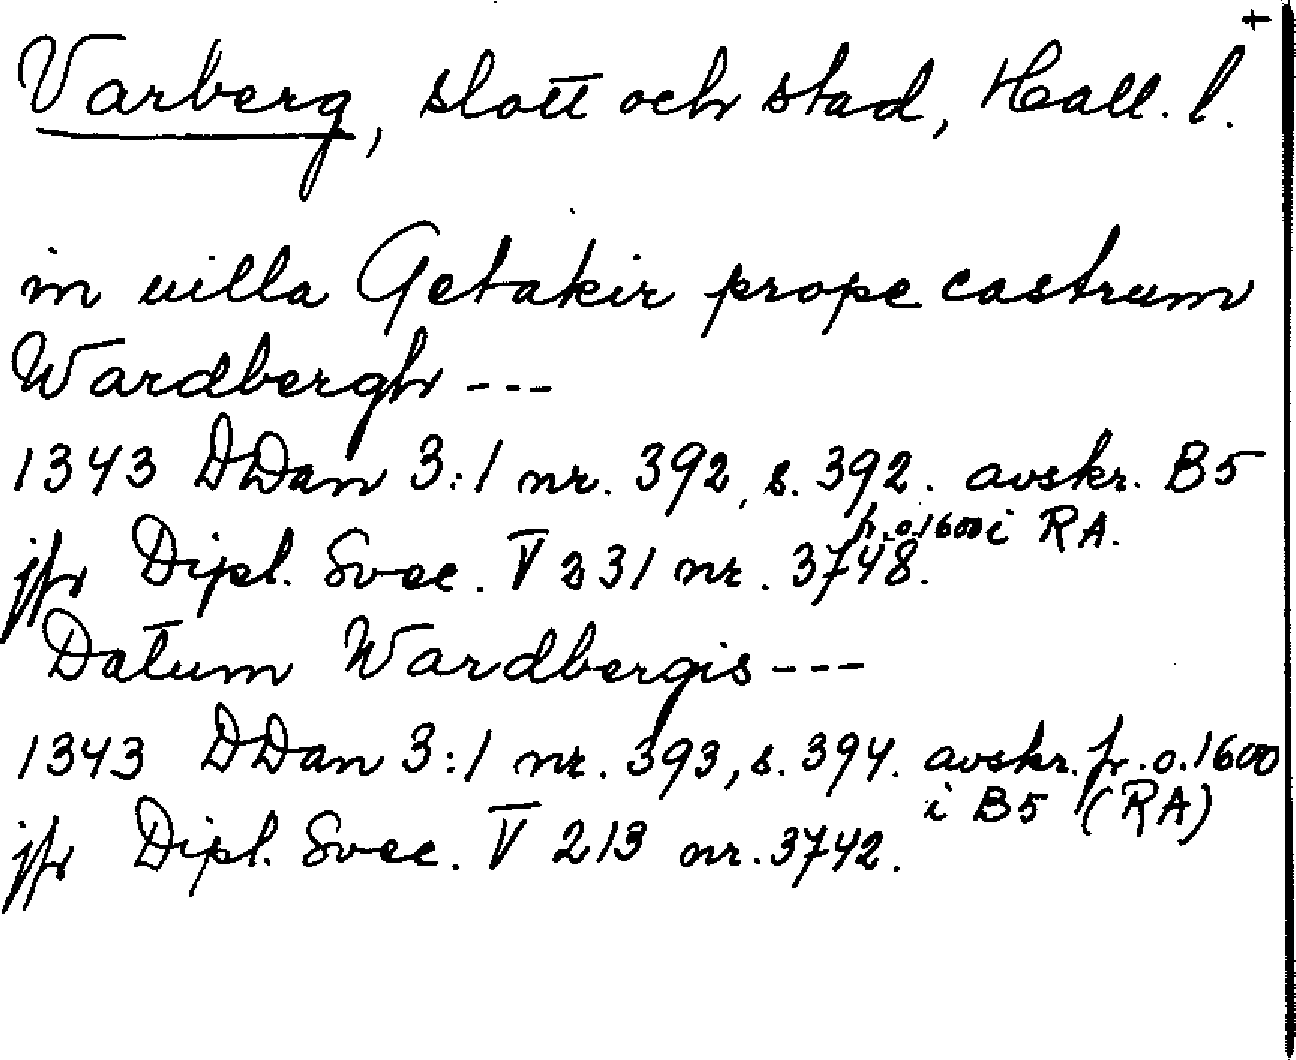 +
Varberg, slott och stad, Hall. l.
in uilla Getakir prope castrum
Wardbergh ---
1343 DDan 3:1 nr. 392, s. 392. avskr. B5
fr. o. 1600 i RA.
jfr Dipl. Svec. V 231 nr. 3748.
Datum Wardbergis ---
1343 DDan 3:1 nr. 393, s. 394. avskr. fr. o. 1600
i B5 (RA)
jfr Dipl. Svec. V 213 nr. 3742.